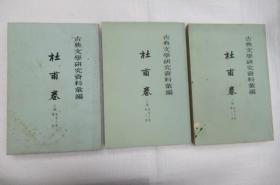 古典文學研究資料彙編
杜甫卷
古典文學研究資料彙編
杜甫卷
古典文學研究資料彙編
杜甫卷